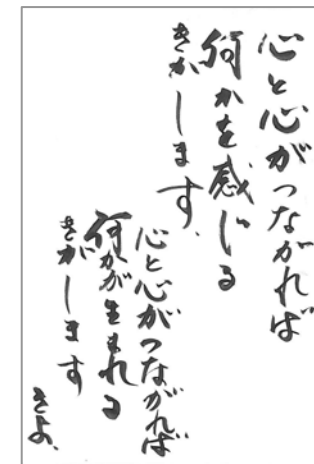 心と心がつながれば
何かを感じる
きがします、
心と心がつながれば
何かが生まれる
きがします
きよ、